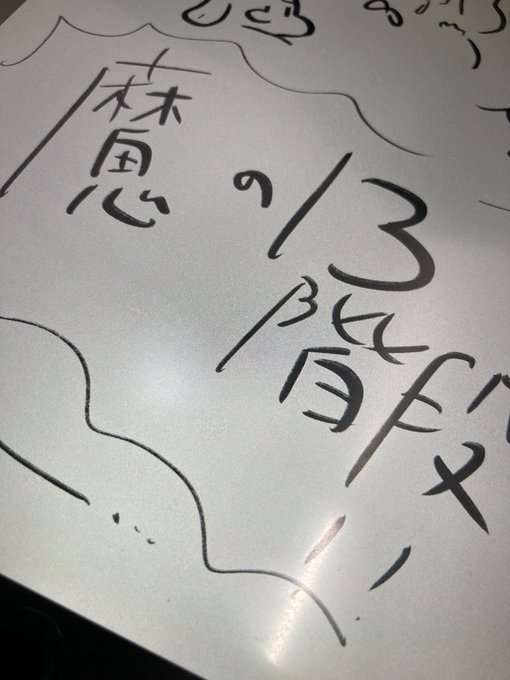 魔の13
階段!!